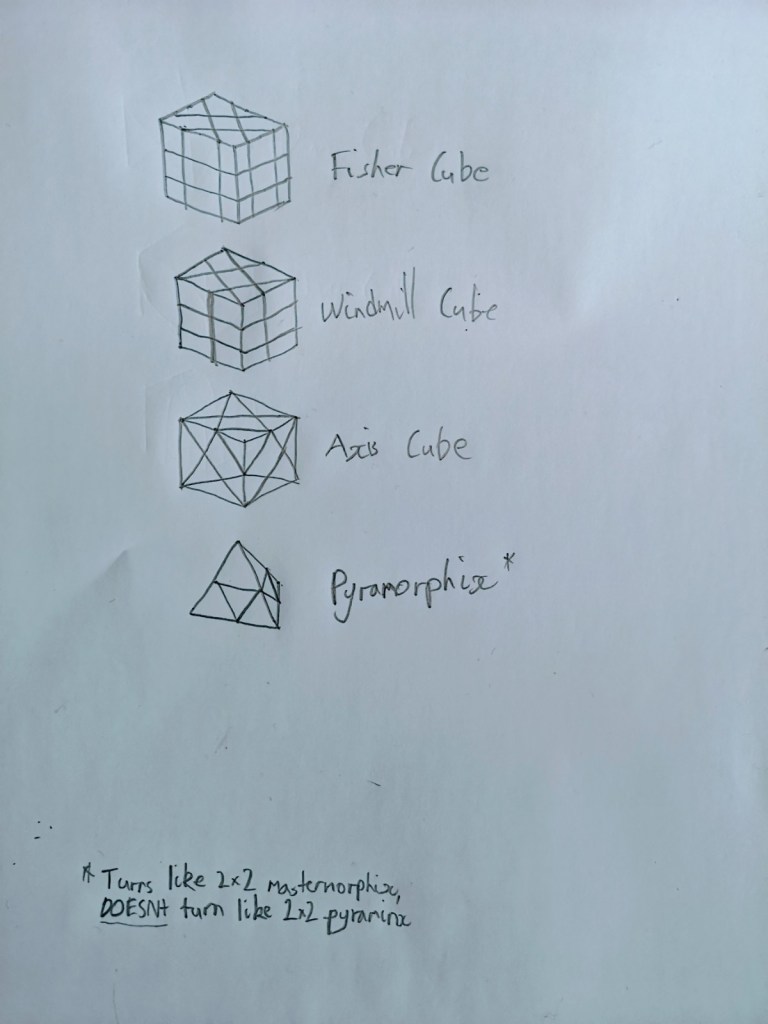 Fisher Cube
Windmill Cube
Axis Cube
Pyramorphix*
* Turns like 2x2 mastermorphix,
DOESNt turn like 2x2 pyraminx